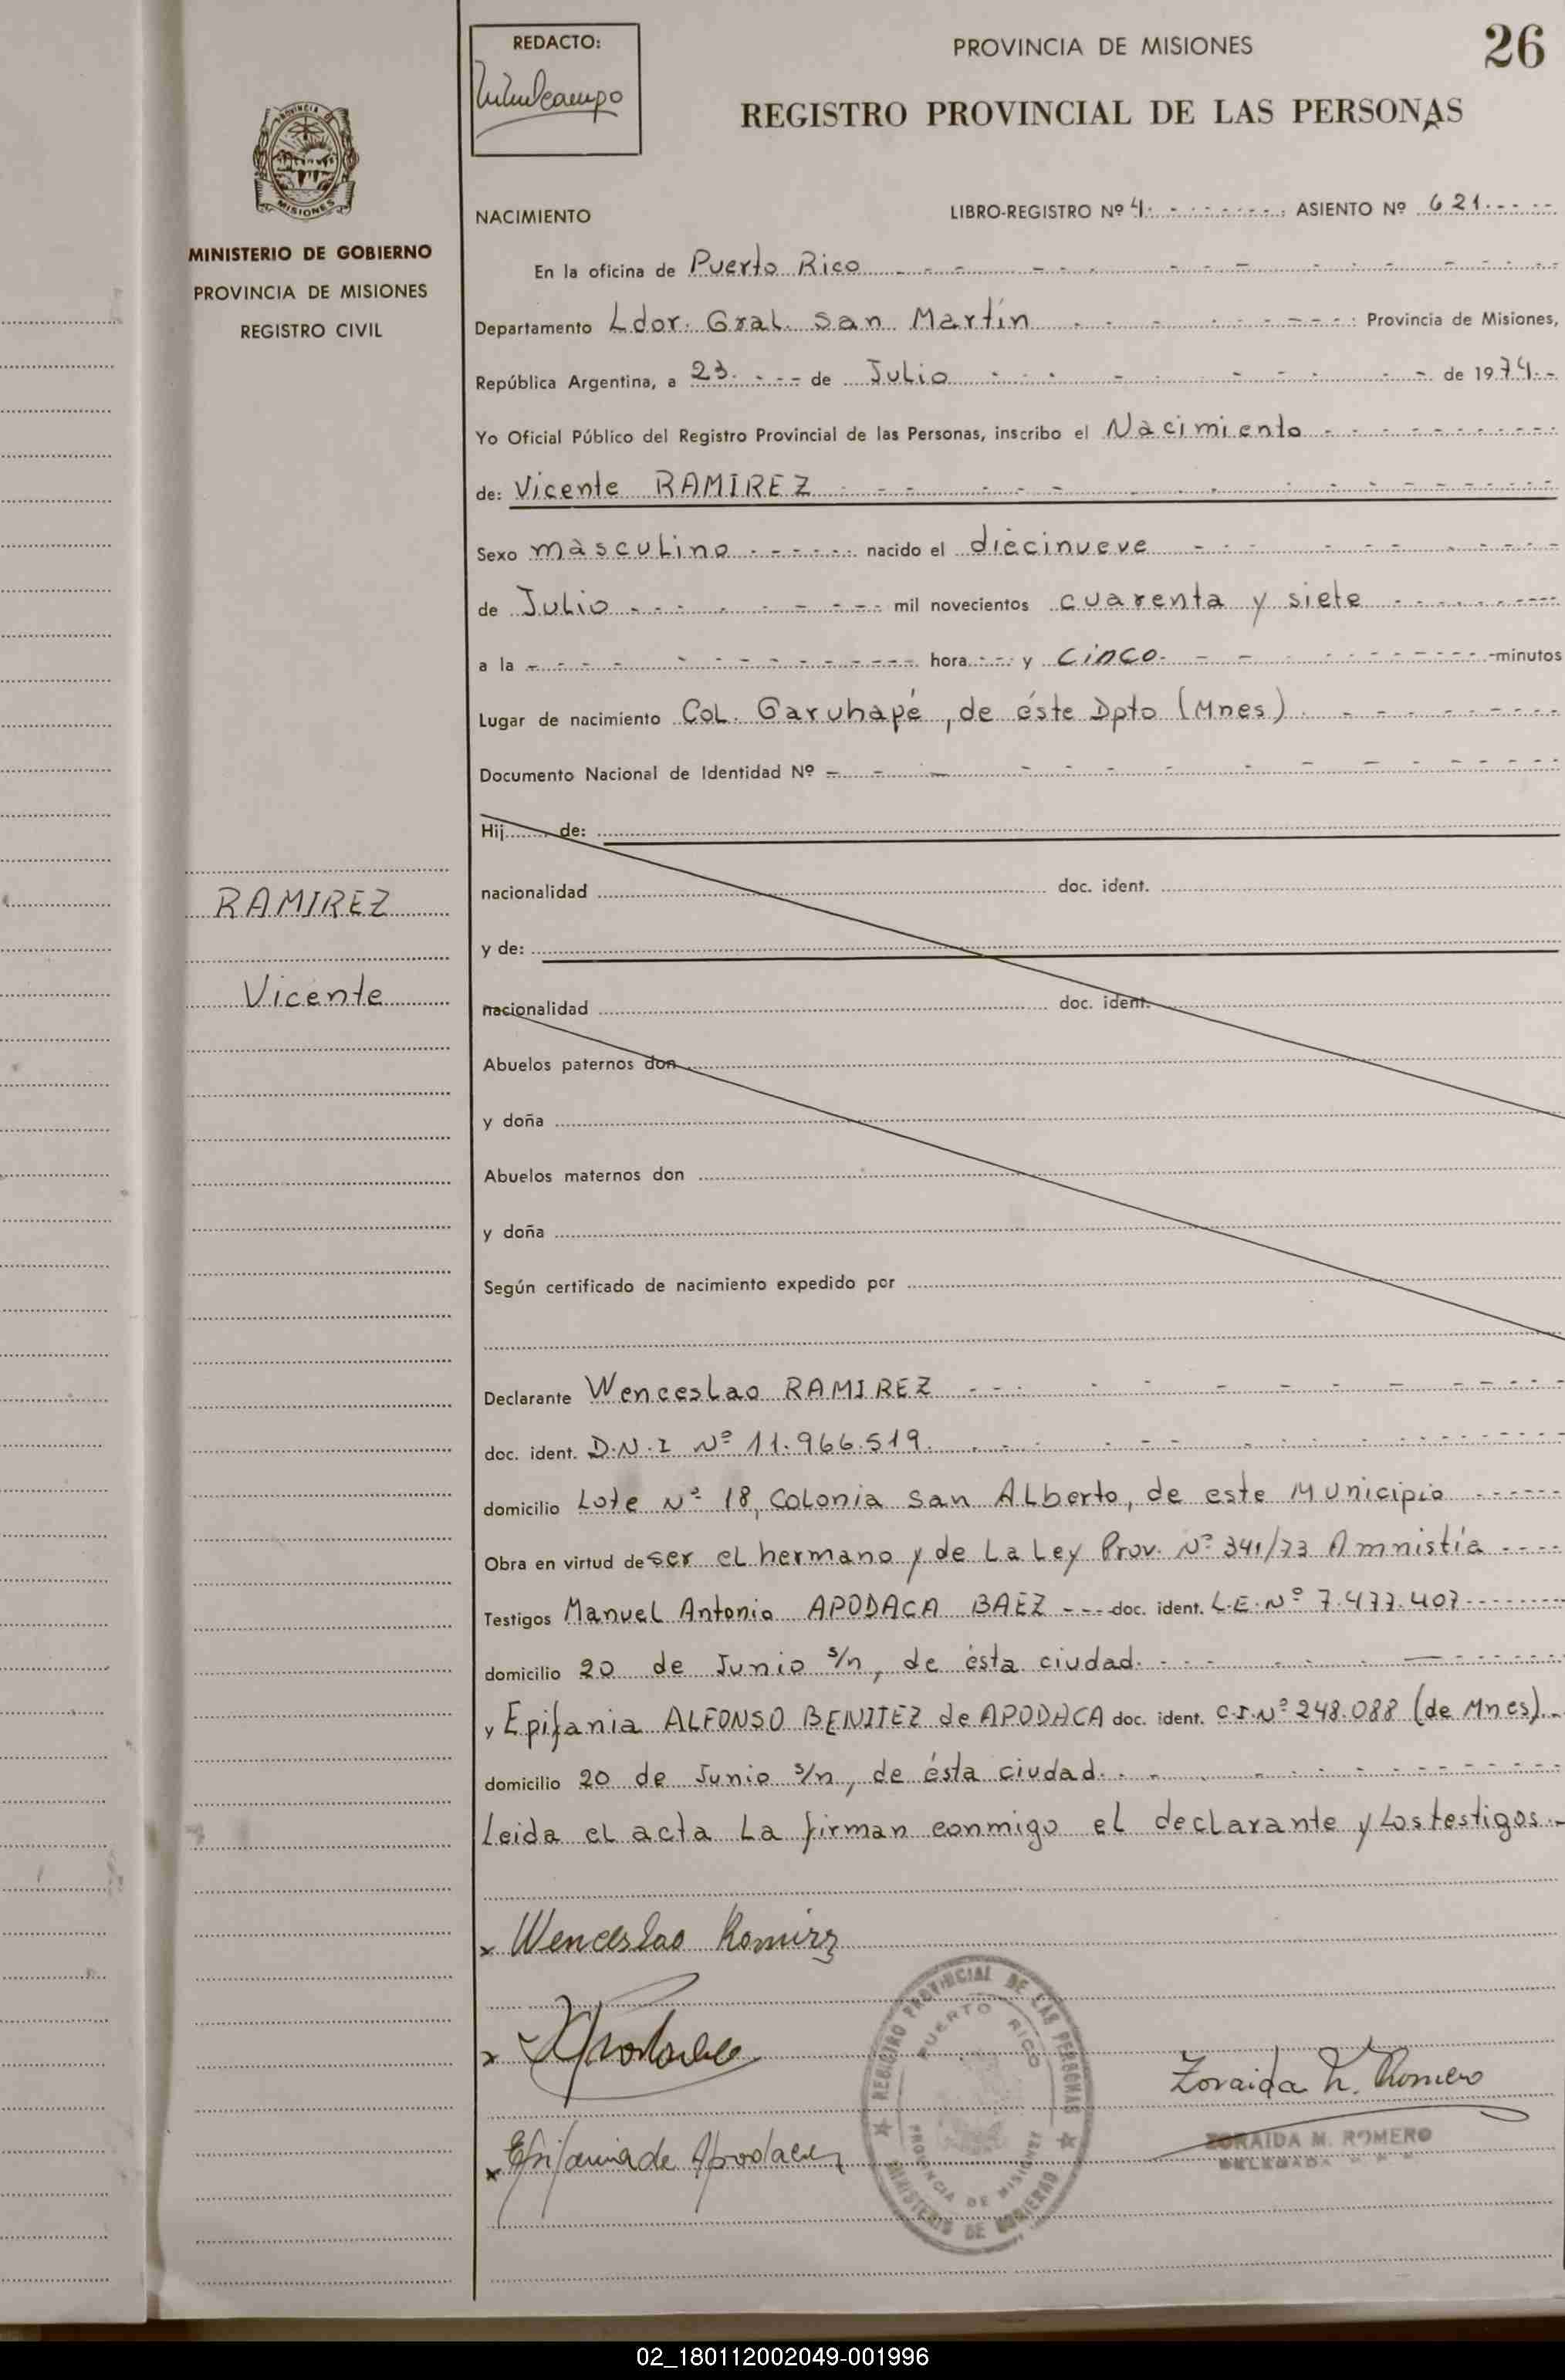 REDACTO:
PROVINCIA DE MISIONES
26
REGISTRO PROVINCIAL DE LAS PERSONAS
PROVINCIA
MISIONES
MINISTERIO DE GOBIERNO
PROVINCIA DE MISIONES
REGISTRO CIVIL
NACIMIENTO
LIBRO-REGISTRO Nº 4 ASIENTO Nº 621
En la oficina de Puerto Rico
Departamento Ldor. Gral. San Martín Provincia de Misiones,
República Argentina, a 23 de Julio de 1974
Yo Oficial Público del Registro Provincial de las Personas, inscribo el Nacimiento
de: Vicente RAMIREZ
Sexo màsculino nacido el diècinueve
de Julio mil novecientos cuarenta y siete
a la hora y cinco minutos
Lugar de nacimiento Col. Garuhapé, de éste Dpto (Mnes)
Documento Nacional de Identidad Nº
Hij de:
nacionalidad doc. ident.
y de:
nacionalidad doc. ident.
Abuelos paternos don
y doña
Abuelos maternos don
y doña
Según certificado de nacimiento expedido por
RAMIREZ
Vicente
Declarante Wenceslao RAMIREZ
doc. ident. D.N.I Nº 11.966.519
domicilio Lote Nº 18, Colonia San Alberto, de este Municipio
Obra en virtud de ser el hermano y de La Ley Prov. Nº 341/73 Amnistía
Testigos Manuel Antonio APODACA BAEZ doc. ident. L.E. Nº 7.477.407
domicilio 20 de Junio s/n, de ésta ciudad.
y Epifania ALFONSO BENITEZ de APODACA doc. ident. C.I. Nº 248.088 (de Mnes).
domicilio 20 de Junio s/n, de ésta ciudad.
Leida el acta La firman conmigo el declarante y Los testigos.
x Wenceslao Romirz
x
x Epifania de Apodaca
REGISTRO PROVINCIAL DE LAS PERSONAS
PUERTO RICO
PROVINCIA DE MISIONES
MINISTERIO DE GOBIERNO
Zoraida M. Romero
ZORAIDA M. ROMERO
DELEGADA
02_180112002049-001996